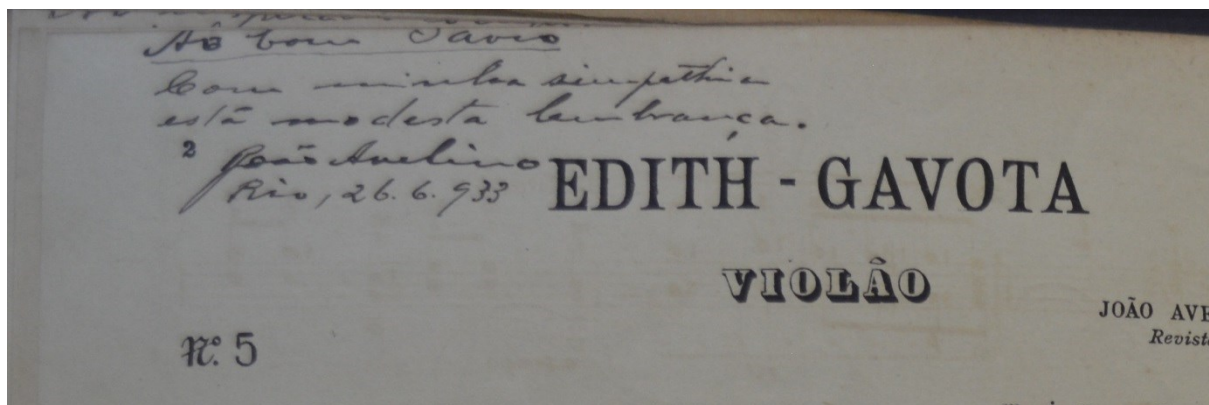 Aô bom Savio
Com minha simpathia
está modesta lembrança.
2
João Avelino
Rio, 26.6.933
EDITH - GAVOTA
VIOLÃO
JOÃO AVE
Revist
Nº. 5